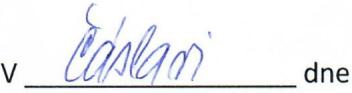 V Čáslavi dne